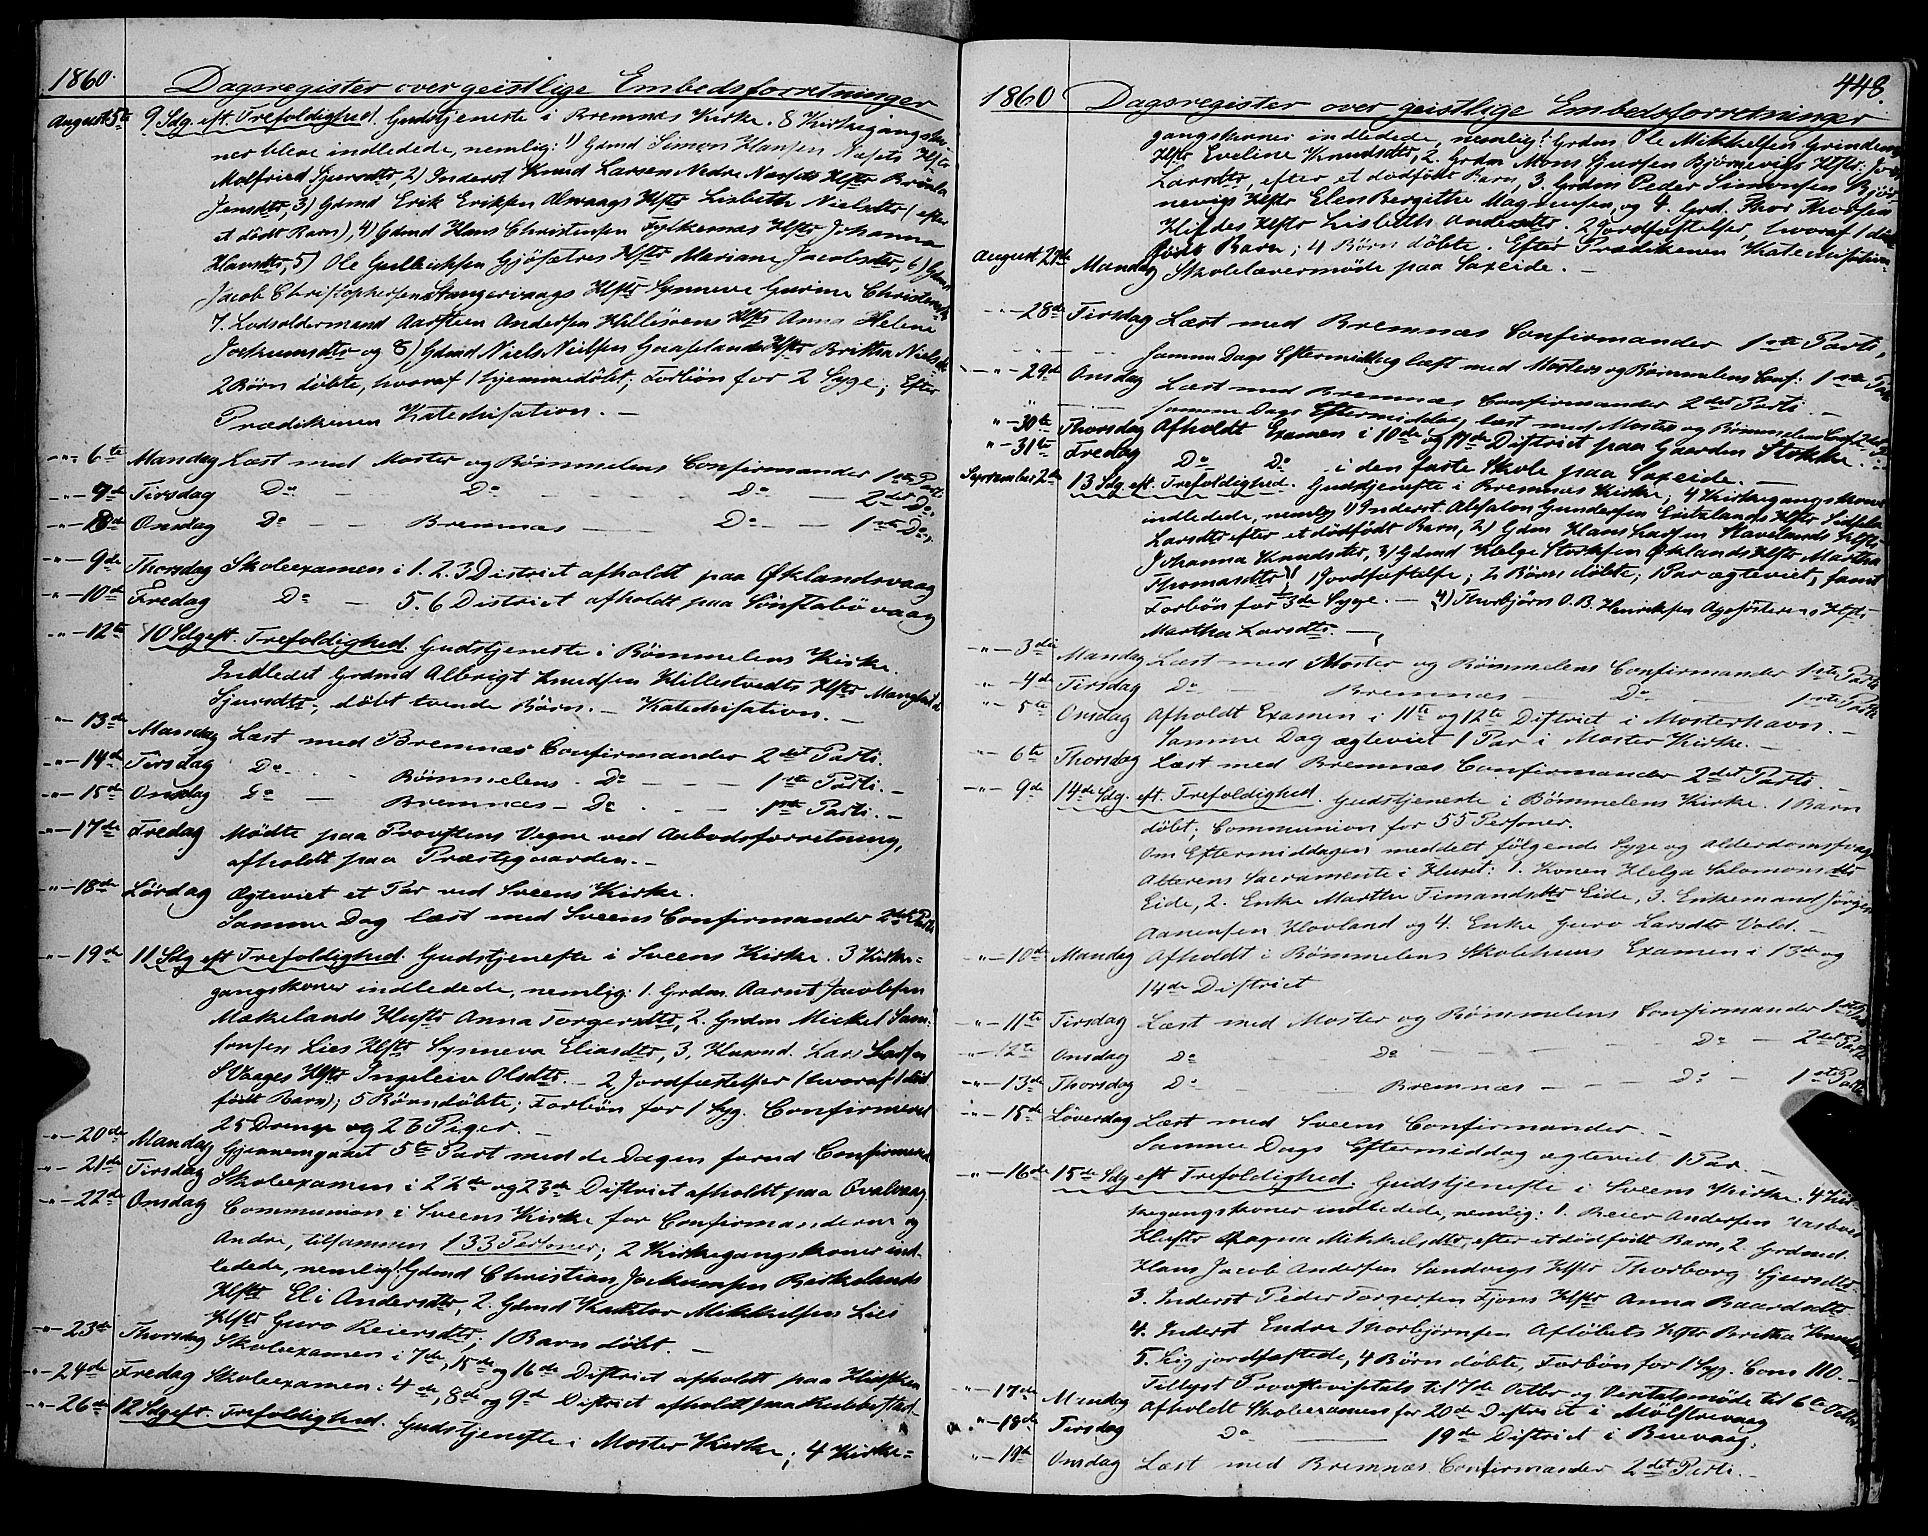 1860.
Dagsregister over geistlige Embedsforretninger
August 5te 9 Sdg. eft. Trefoldighed. Gudstjeneste i Bremnæs Kirke. 8 Kirkegangsko-
ner bleve indledede, nemlig: 1) Gdmd Simon Hansen Næsets Hstr
Malfried Sjursdtr, 2) Inderst Knud Larsen Nedre Næsets Hstr Brithe
Jensdtr, 3) Gdmd Erik Eriksen Alvaags Hstr Lisbeth Nielsdtr (efter
et dödt Barn), 4) Gdmd Hans Christensen Fylkernæs Hstr Johanna
Hansdtr, 5) Ole Gulliksen Gjösætres Hstr Mariane Jacobsdtr, 6) Gdmd
Jacob Christophersen Stangervaags Hstr Synneve Gurine Christensdtr
7. Lodsoldermand Aarsteen Andersen Hillesöens Hstr Anna Helene
Jochumsdtr og 8) Gdmd Niels Nielsen Gaaselands Hstr Britha Nielsdtr
2 Börn döbte, hvoraf 1 hjemmedöbt; Forbön for 2 Syge; Efter
Prædikenen Katechisation. —
" - 6te Mandag Læst med Moster og Bömmelens Confirmander 1ste Parti
" - 7de Tirsdag Do — Do — — Do — 2det Do.
" - 8de Onsdag Do — — Bremnæs — — Do — 1ste Do.
" - 9de Thorsdag Skoleexamen i 1. 2. 3 District afholdt paa Öklandsvaag
" - 10de Fredag Do — 5. 6 District afholdt paa Sönstabövaag
" - 12te 10 Sdg eft. Trefoldighed. Gudstjeneste i Bömmelens Kirke.
Indledet Grdmd Albrigt Knudsen Hillestvedts Hstr Manghild
Sjursdtr; döbt tvende Börn. — Katechisation. —
" - 13de Mandag Læst med Bremnæs Confirmander 2det Parti.
" - 14de Tirsdag Do — Bömmelens Do — — 1ste Parti. —
" - 15de Onsdag Do — Bremnæs — Do — 1ste Parti. —
" - 17de Fredag Mödte paa Provstens Vegne ved Aabodsforretning,
afholdt paa Præstegaarden. —
" - 18de Lördag Ægteviet et Par ved Sveens Kirke.
Samme Dag læst med Sveens Confirmander 2det Parti
" - 19de 11 Sdg eft Trefoldighed. Gudstjeneste i Sveens Kirke. 3 Kirke-
gangskoner indledede, nemlig: 1. Grdm. Aarnt Jacobsen
Mækelands Hustr Anna Torgersdtr, 2. Grdm Mickel Sam-
sonsen Lies Hstr Synneva Eliasdtr, 3. Husmd. Lars Larsen
S Vaages Hstr Ingeleiv Olsdtr. — 2 Jordfæstelser (hvoraf 1 död-
födt Barn); 5 Börn döbte; Forbön for 1 Syg. Confirmeret
25 Drenge og 26 Piger. —
" - 20de Mandag Gjennemgaaet 5te Part med de Dagen forud Confirmerede
" - 21de Tirsdag Skoleexamen i 22de og 23de District afholdt paa Ovalvaag
" - 22de Onsdag Communion i Sveens Kirke for Confirmanderne og
Andre, tilsammen 133 Personer; 2 Kirkegangskoner ind-
ledede, nemlig: 1. Gdmd Christian Jochumsen Birkelands
Hstr Eli Andersdtr, 2. Gdmd Mikkelsen Lies
Hstr Guro Reiersdtr; 1 Barn döbt. —
" - 23de Thorsdag Skoleexamen i 7de, 15de og 16de District afholdt paa
" - 24de Fredag Skoleexamen i 4de, 8de og 9de District afholdt paa
" - 26de 12 Sdg eft. Trefoldighed. Gudstjeneste i Moster Kirke; 4 Kirke-
1860
448.
Dagsregister over geistlige Embedsforretninger
gangskoner indledede, nemlig: 1. Grdm Ole Mikkelsen Grindems
Hstr Eveline Knudsdtr, 2. Grdm Mons Sjursen Björnevigs Hstr
Larsdtr, efter et dödfödt Barn, 3. Grdm Peder Simonsen Björ-
nevigs Hstr Elen Bergitte Magnusen, og 4. Grd. Thor Thorsen
Hstr Lisbeth Andersdtr. 2 Jordfæstelser, hvoraf 1 död-
födt Barn; 4 Börn döbte. Efter Prædikenen Katechisation. —
August 27de Mandag Skolelærermöde paa Saxeide. —
" - 28de Tirsdag Læst med Bremnæs Confirmander 1ste Parti,
Samme Dags Eftermiddag læst med Mosters og Bömmelens Conf: 1ste Parti
" - 29de Onsdag Læst med Bremnæs Confirmander 2det Parti. —
Samme Dags Eftermiddag læst med Moster og Bömmelens Conf. 2det P.
" - 30te Thorsdag Afholdt Examen i 10de og 17de District paa Gaarden Stokke.
" - 31te Fredag Do Do i den faste Skole paa Saxeide. —
September 2de 13 Sdg. eft. Trefoldighed. Gudstjeneste i Bremnæs Kirke; 4 Kirkegangskoner
indledede, nemlig 1) Inderst Absalon Gundersen Hstr
Larsdtr efter et dödfödt Barn, 2) Gdm Hans Larsen Havelands Hstr
Johanna Knudsdtr, 3) Gdmd Helge Storksen Öklands Hstr Martha
Thomasdtr!! 1 Jordfæstelse; 2 Börn döbte; 1 Par ægteviet, samt
Forbön for 3de Syge. — 4) Thorbjörn O.B. Henriksen Hstr
Martha Larsdtr. —
" - 3die Mandag Læst med Moster og Bömmelens Confirmander 1ste Parti
" - 4de Tirsdag Do — Bremnæs — Do 1ste Parti
" - 5te Onsdag Afholdt Examen i 11te og 12te District i Mosterhavn. —
Samme Dag ægteviet 1 Par i Moster Kirke. —
" - 6te Thorsdag Læst med Bremnæs Confirmander 2det Parti. —
" - 9de 14de Sdg. eft. Trefoldighed. Gudstjeneste i Bömmelens Kirke. 1 Barn
döbt; Communion for 55 Personer.
Om Eftermiddagen meddelt fölgende Syge og alderdomssvage
Alterens Sacramente i Huset: 1. Konen Helga Salomonsdtr
Eide, 2. Enke Marthe Timandsdtr Eide, 3. Enkemand Jörgen
Aanensen Hovland og 4. Enke Guro Larsdtr Vold. —
" - 10de Mandag Afholdt i Bömmelens Skolehuus Examen i 13de og
14de District
" - 11te Tirsdag Læst med Moster og Bömmelens Confirmander 1ste Parti
" - 12te Onsdag Do Do — — Do — 2det Parti
" - 13de Thorsdag Do — Bremnæs — — Do — 1ste Parti
" - 15de Löverdag Læst med Sveens Confirmander. —
Samme Dags Eftermiddag ægteviet 1 Par. —
" - 16de 15de Sdg eft Trefoldighed. Gudstjeneste i Sveens Kirke. 4 Kir-
kegangskoner indledede, nemlig: 1. Reier Andersen
Hustr Ragna Mikkelsdtr, efter et dödfödt Barn, 2. Grdmd.
Hans Jacob Andersen Sandvigs Hstr Thorborg Sjursdtr
3. Inderst Peder Torgersen Fjons Hstr Anna Baardsdtr
4. Inderst Endre Thorbjörnsen Aflöbets Hstr Britha Knudsdtr
5. Liig jordfæstede, 4 Börn döbte, Forbön for 1 Syg. Com 110. —
Tillyst Provstevisitats til 7de Octbr og Valgmöde til 6te Octbr
" - 17de Mandag Afholdt Skoleexamen for 20de District i Mölstrevaag
" - 18de Tirsdag Do — 19de District i Buevaag.
" - 19de Onsdag Læst med Bremnæs Confirmander 2det Parti. —